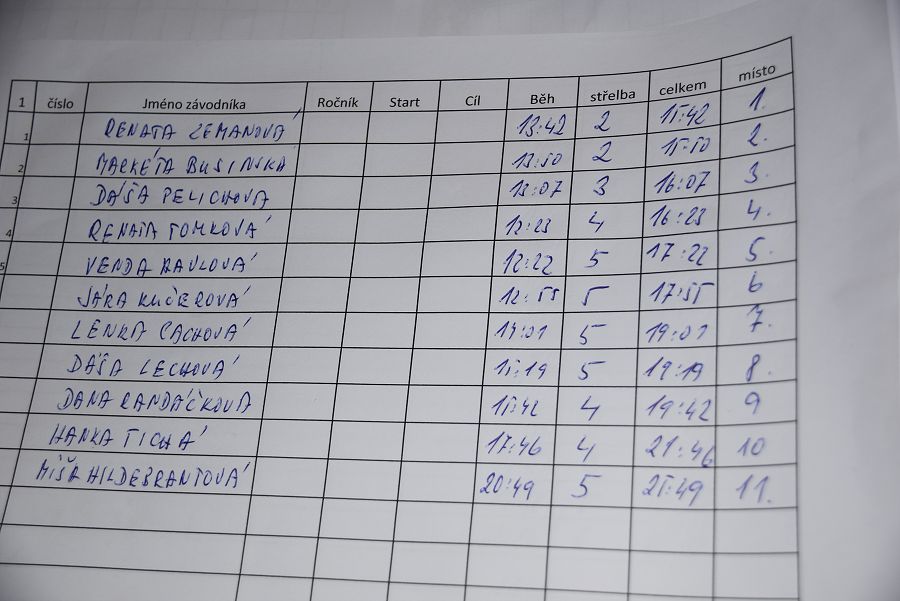 1 číslo Jméno závodníka Ročník Start Cíl Běh střelba celkem místo
1 RENATA ZEMANOVÁ 13:42 2 15:42 1.
2 MARKÉTA BUSINSKÁ 13:50 2 15:50 2.
3 DÁŠA PELICHOVÁ 13:07 3 16:07 3.
4 RENATA TOMKOVÁ 12:23 4 16:23 4.
5 VENDA PAVLOVÁ 12:22 5 17:22 5.
JÁRA KUČEROVÁ 12:55 5 17:55 6
LENKA CACHOVÁ 14:01 5 19:01 7.
DÁŠA LECHOVÁ 8.
DANA RANDÁČKOVÁ 15:42 4 19:42 9
HANKA TICHÁ 17:46 4 21:46 10
MÍŠA HILDEBRANTOVÁ 20:49 5 25:49 11.